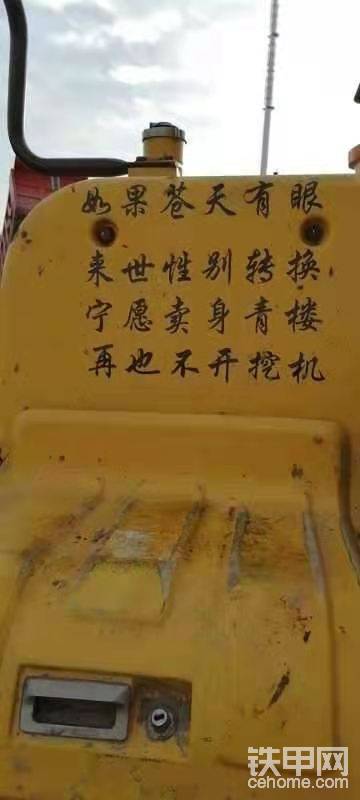 如果苍天有眼
来世性别转换
宁愿卖身青楼
再也不开挖机
铁甲网
cehome.com